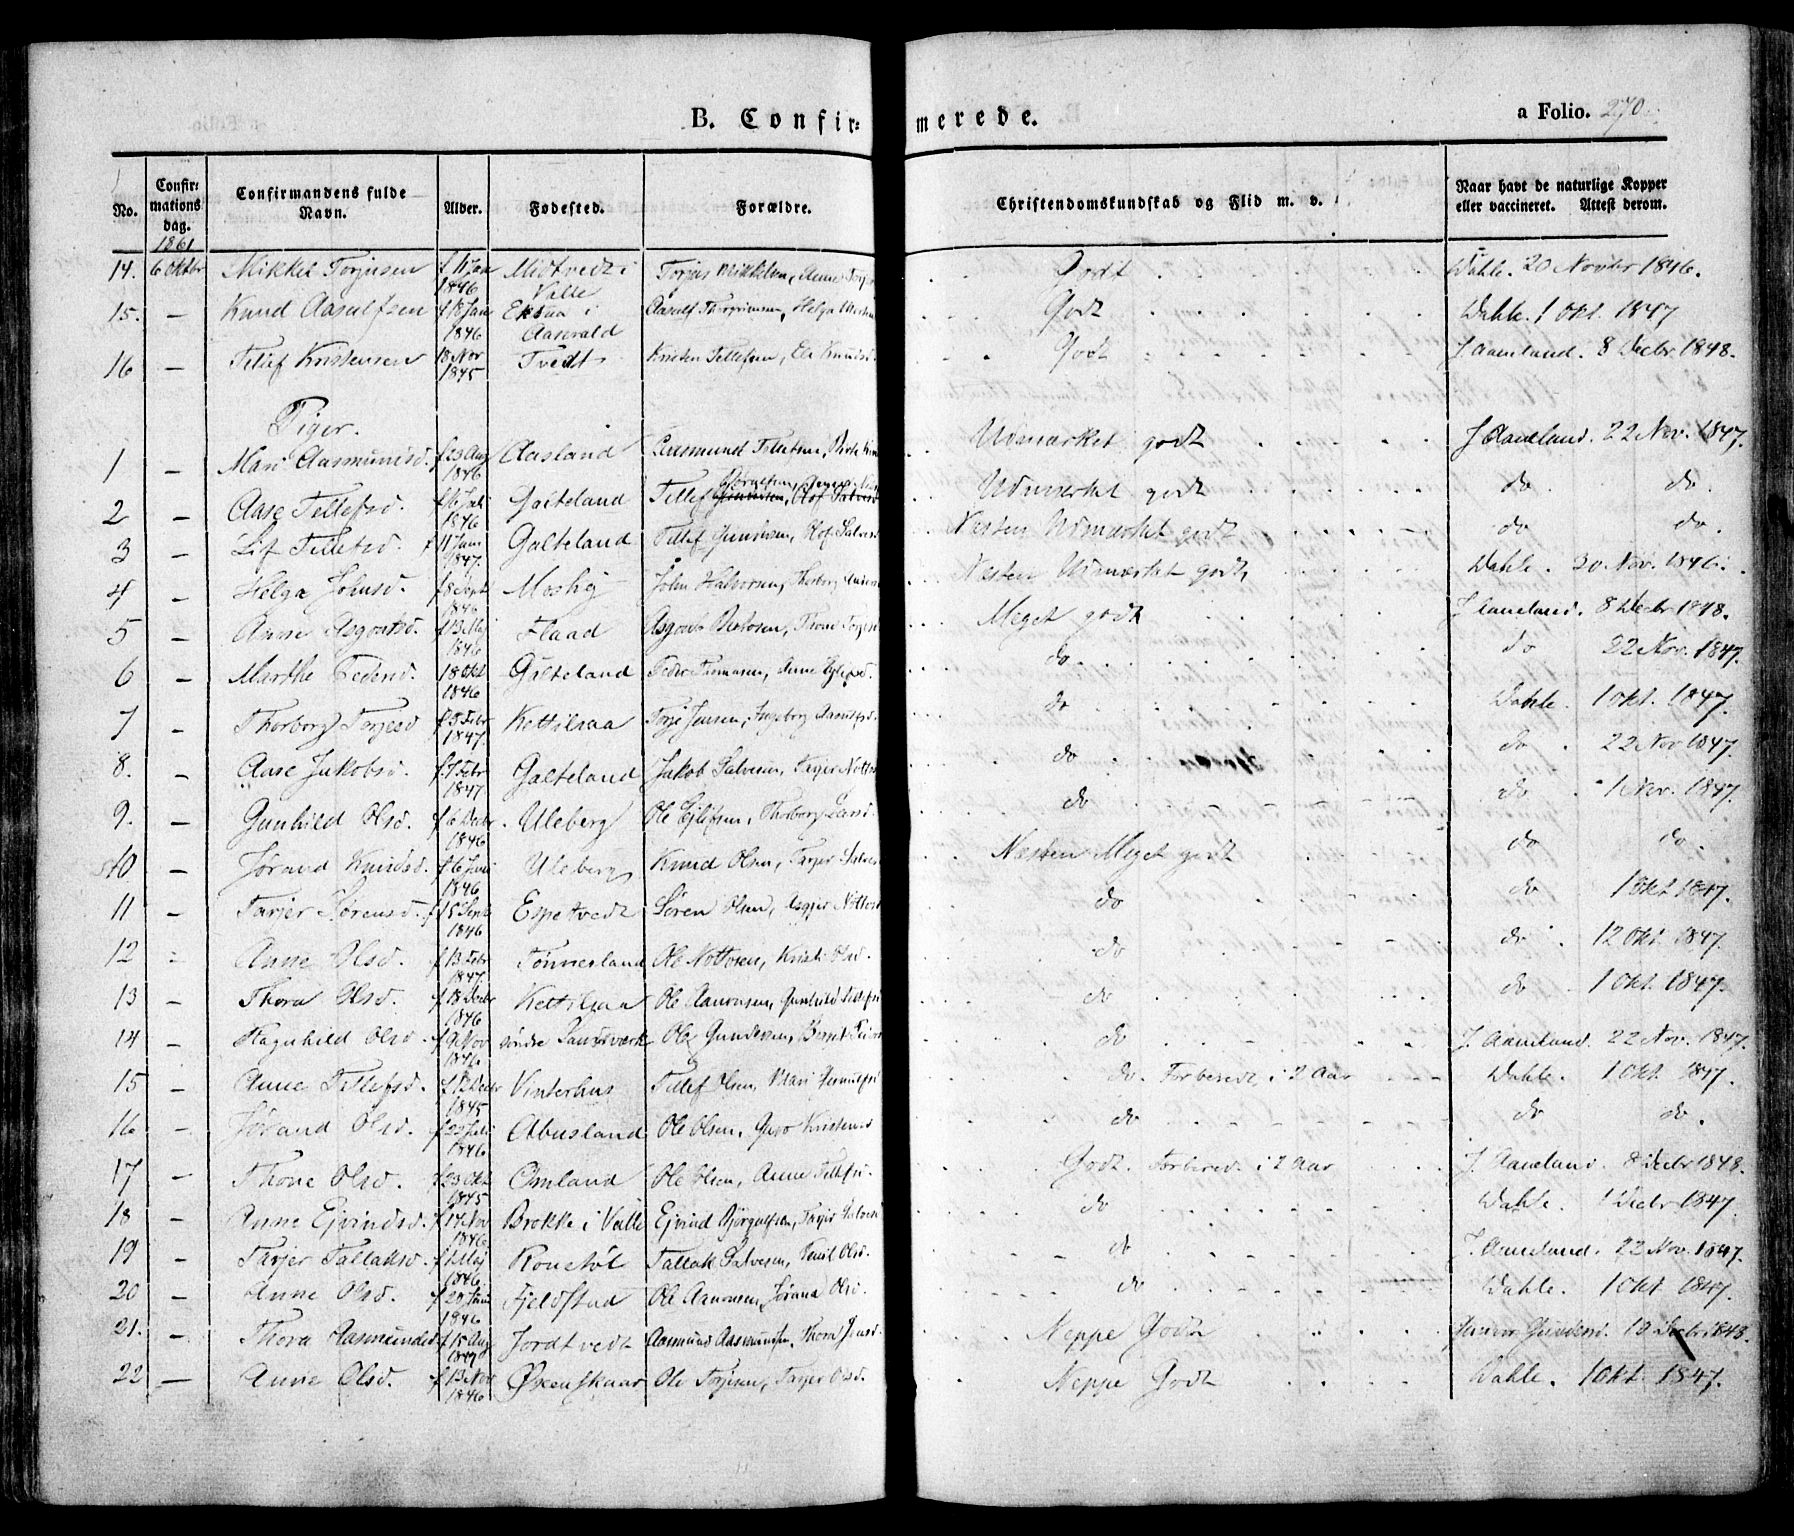 B. Confirmerede. a Folio. 270.
No. Confirmations dag. Confirmandens fulde Navn. Alder. Fodested. Forældre. Christendomskundskab og Flid m. v. Naar havt de naturlige Kopper eller vaccineret. Attest derom.
1861
14. 6 Oktbr Mikkel Torjusen f 11 Jan 1846 Midtvedt i Valle Torjus Mikkelsen, Anne Godt Wahle. 20 Novbr 1846.
15. — Knud Aasulfsen f 18 Jan 1846 i Aaserald Aasulf Helga Godt Wahle. 1 Okt. 1847
16 — Tellef Kristensen 13 Nov 1845 Tvedt Kristen Tellefsen, Knudsd. Godt J Aaneland. 8 Decbr 1848.
Piger.
1 — Mari Aasmundsd. f 23 Aug 1846 Aasland Aasmund Tellefsen, Udmærket godt J Aaneland. 22 Nov. 1847.
2 — Aase Tellefsd. f 16 Juli 1846 Galteland Tellef Udmærket godt do do.
3 — Lif Tellefsd. f 11 Jan 1847. Galteland Tellef Gundersen, Olof Salvesd Nesten Udmærket godt do do.
4 — Helga Johnsd. f 8 Sept 1846 Moshij John Halvorsen, Thorborg Nesten Udmærket godt Wahle. 30 Nov. 1846.
5 — Anne Asgoutsd. f 13 Maj 1846 Flaad Asgout Thone Meget godt J Aaneland. 8 Decbr 1848.
6 — Marthe Pedersd. 18 Okt 1846 Galteland Peder Anne do. do 22 Nov. 1847.
7 — Thorborg Torjesd f 5 Febr 1847. Kettilsaa Torje Jensen, Ingeborg do Wahle. 1 Okt. 1847.
8. — Aase Jakobsd. f. 7 Febr 1847 Galteland Jakob Salvesen, Tarjer do do. 22 Nov 1847.
9. — Gunhild Olsd. f 6 Decbr 1846 Uleberg Ole Ejlifsen, Thorborg do do 1 Nov. 1847.
10 — Jørand Knudsd. f 6 Juni 1846 Uleberg Knud Olsen, Tarjer Nesten Meget godt do do.
11 — Tarjer Sørensd. f 15 Sept 1846 Espetvedt Søren Olsen, Asgjer do do 1 Okt 1847.
12 Anne Olsd. f 13 Febr 1847. Tønnesland Ole Nottosen, Kristi Olsd. do do. 12 Okt. 1847.
13 — Thora Olsd. f 18 Decbr 1846 Kettilsaa Ole Aanonsen, Gunhild Tellefsd do do 1 Okt. 1847.
14 — Ragnhild Olsd f 9 Nov 1846 søndre Ole Gundersen, do J. Aaneland. 22 Nov. 1847.
15 — Anne Tellefsd. f 12 Decbr 1845 Vinterhus Tellef Olsen, Mari do. Forberedt i 2 Aar Wahle. 1 Okt. 1847.
16 — Jørand Olsd. f 22 Juli 1846 Abusland Ole Olsen, Guro do do do.
17 — Thone Olsd. f 23 Okt 1845 Omland Ole Olsen, Anne Tellefsd. Godt. Forberedt i 2 Aar J. Aaneland. 8 Decbr 1848.
18 — Anne Ejvindsd. f 17 Nov 1846 Brokke i Valle Ejvind Bjørgulfsen, Tarjer do Wahle. 1 Decbr 1847.
19 — Tarjer Tallaksd. f 1 Maj 1846 Tallak Salvesen, Olsd. do J. Aaneland. 22 Nov. 1847.
20 — Anne Olsd. f 20 Juni 1846 Fjeldstad Ole Aanonsen, Jørand Olsd. do Wahle. 1 Okt. 1847.
21. — Thora Aasmundsd f 15 Aug Jordtvedt Aasmund Aasmundsen. Thora Jensd. Neppe Godt 19 Decbr 1848.
22 — Anne Olsd. f 13 Nov 1846 Øxenskaar Ole Torjesen, Tarjer Olsd. Neppe Godt Wahle. 1 Okt. 1847.